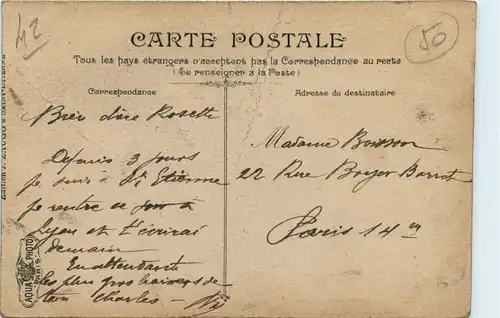 42
50
CARTE POSTALE
Tous les pays étrangers n'acceptent pas la Correspondance au recto
(Se renseigner à la Poste)
Correspondance
Adresse du destinataire
Bien chère Rosette
Depuis 3 jours
je suis à St Etienne
je rentre ce jour à
Lyon et t'écrirai
demain
En attendant
les plus gros baisers de
ton Charles
Madame Bousson
22 Rue Boyer Barret
Paris 14 em
AQUA PHOTO
PARIS